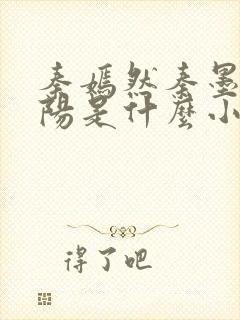 秦嫣然秦墨
阳是什麼小
得了吧